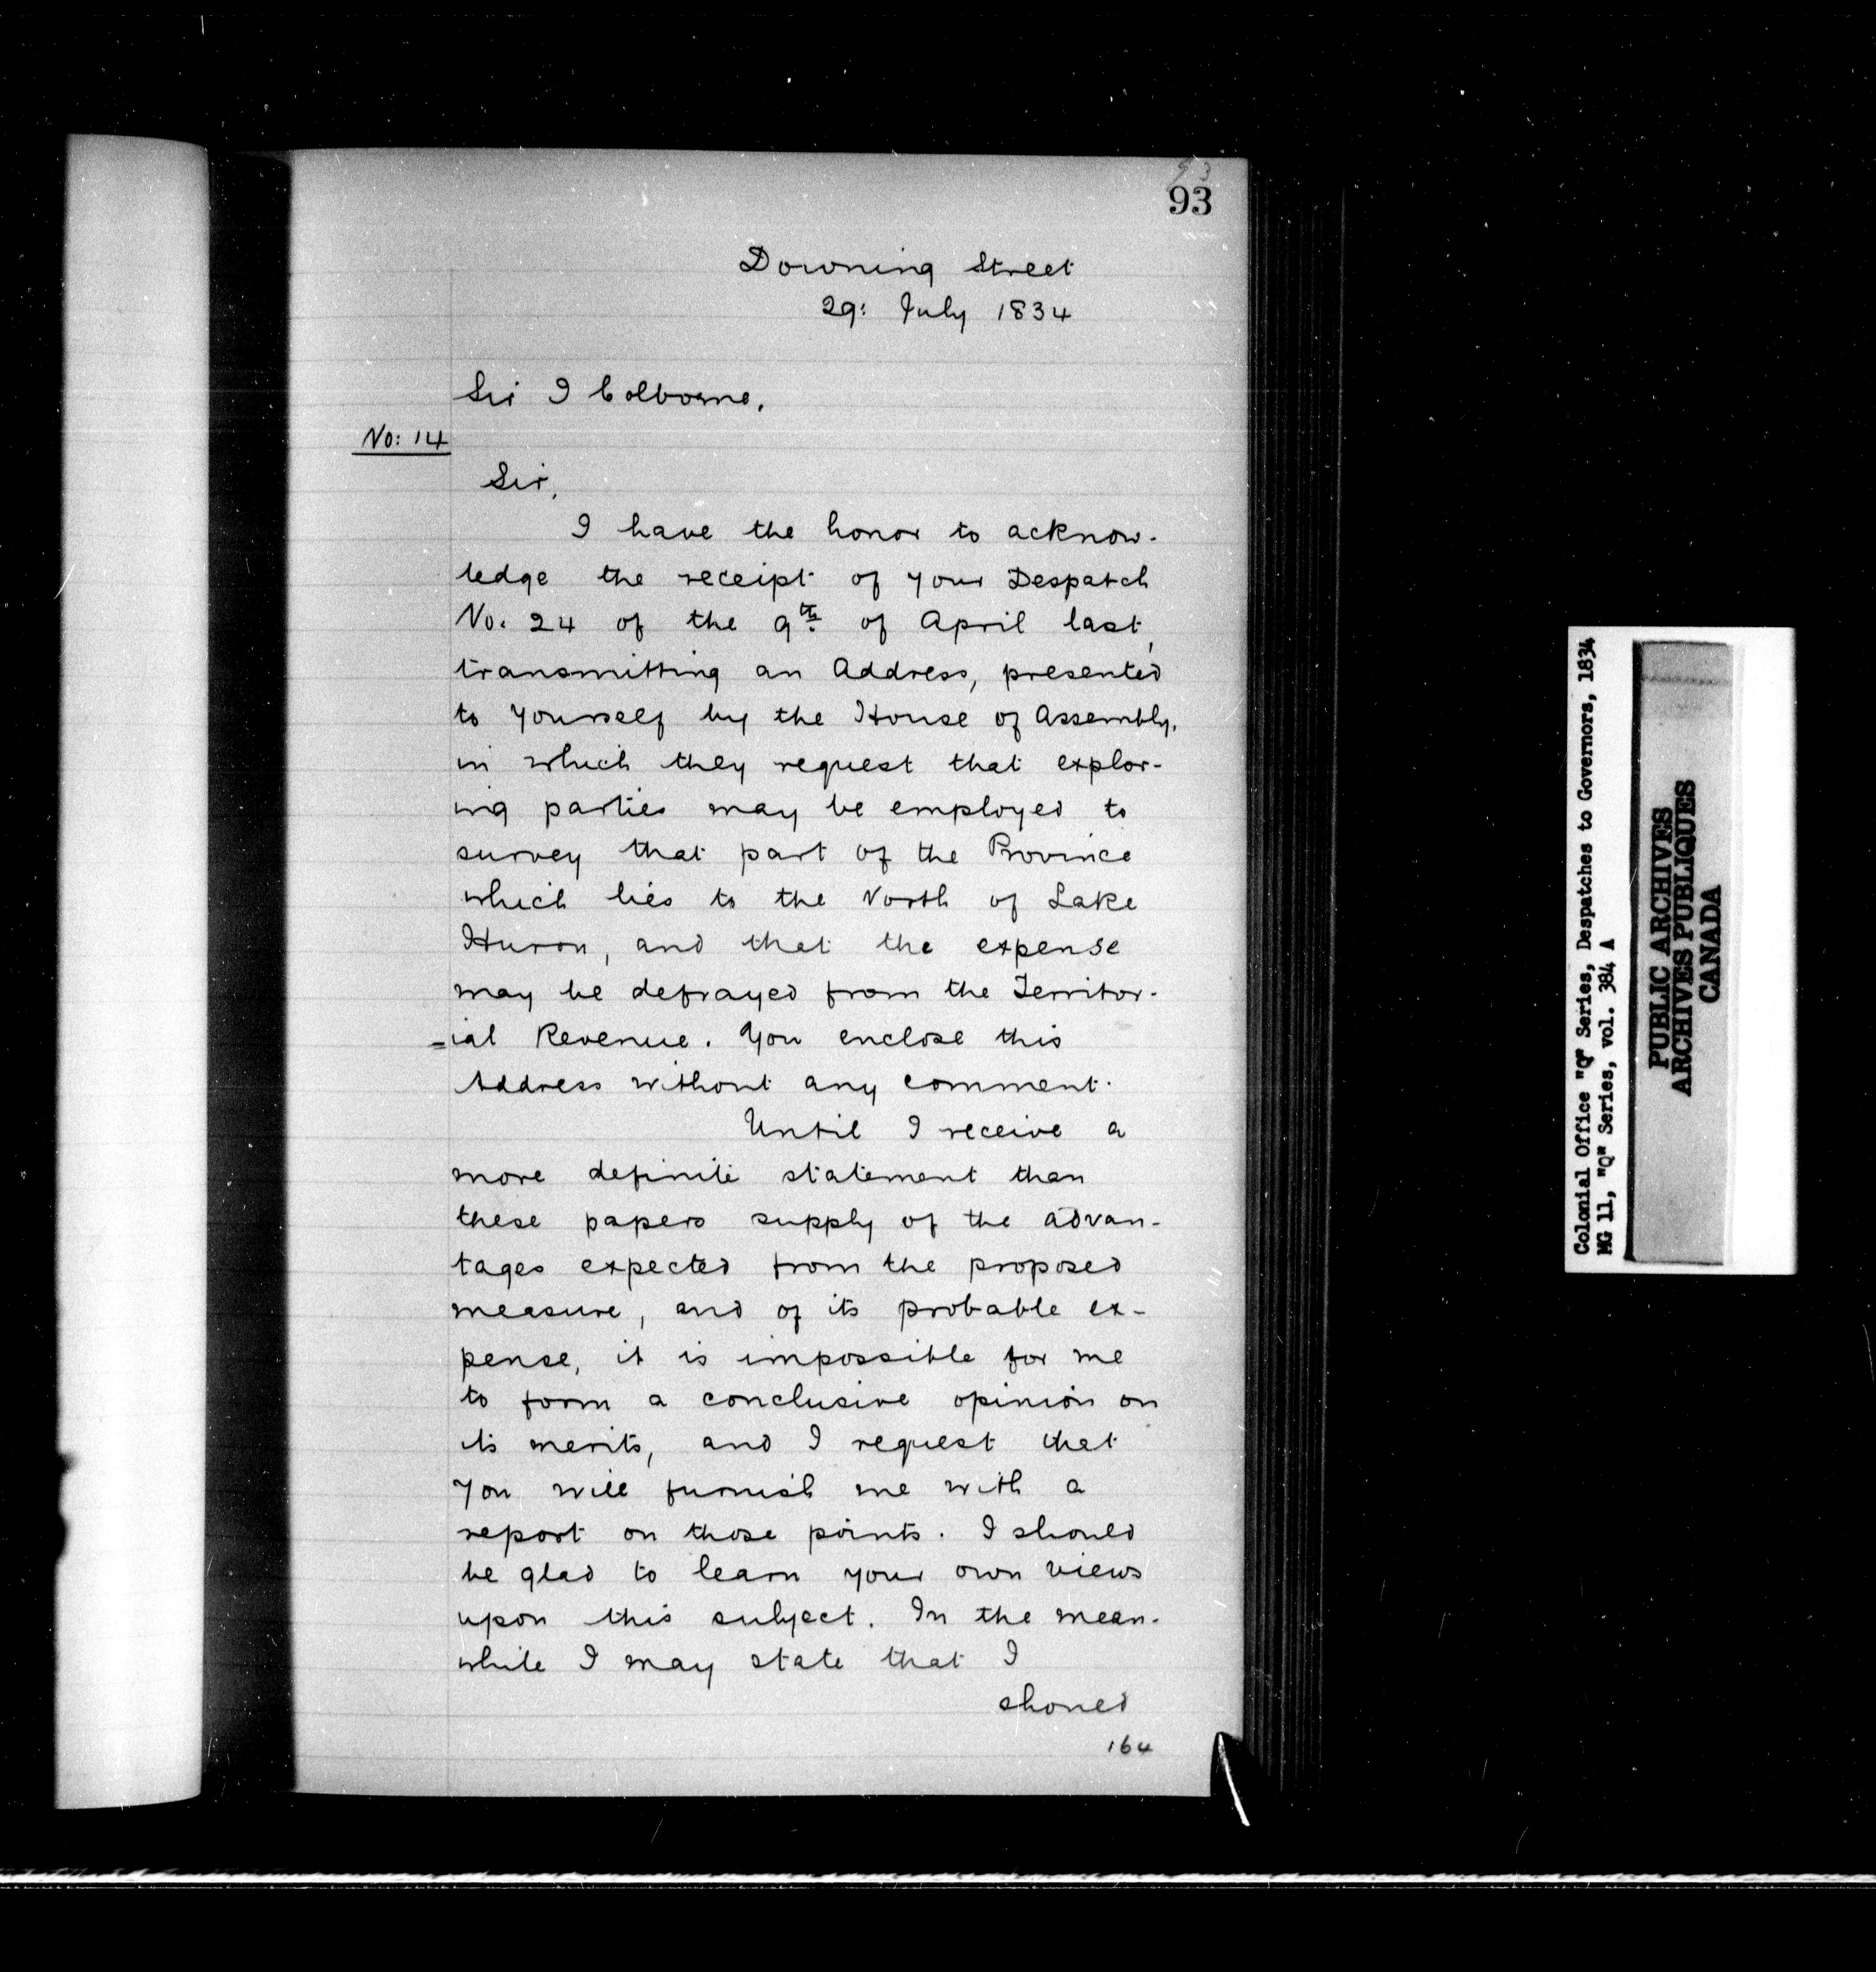 93
93
Downing Street
29: July 1834
Sir J Colborne,
No: 14
Sir,
I have the honor to acknow-
ledge the receipt of your Despatch
No. 24 of the 9th of April last,
transmitting an Address, presented
to yourself by the House of Assembly,
in which they request that explor-
ing parties may be employed to
survey that part of the Province
which lies to the North of Lake
Huron, and that the expense
may be defrayed from the Territor-
=ial Revenue. You enclose this
Address without any comment.
Until I receive a
more definite statement than
these papers supply of the advan-
tages expected from the proposed
measure, and of its probable ex-
pense, it is impossible for me
to form a conclusive opinion on
its merits, and I request that
you will furnish me with a
report on those points. I should
be glad to learn your own views
upon this subject. In the mean-
while I may state that I
should
164
Colonial Office "Q" Series, Despatches to Governors, 1834
MG 11, "Q" Series, vol. 384 A
PUBLIC ARCHIVES
ARCHIVES PUBLIQUES
CANADA